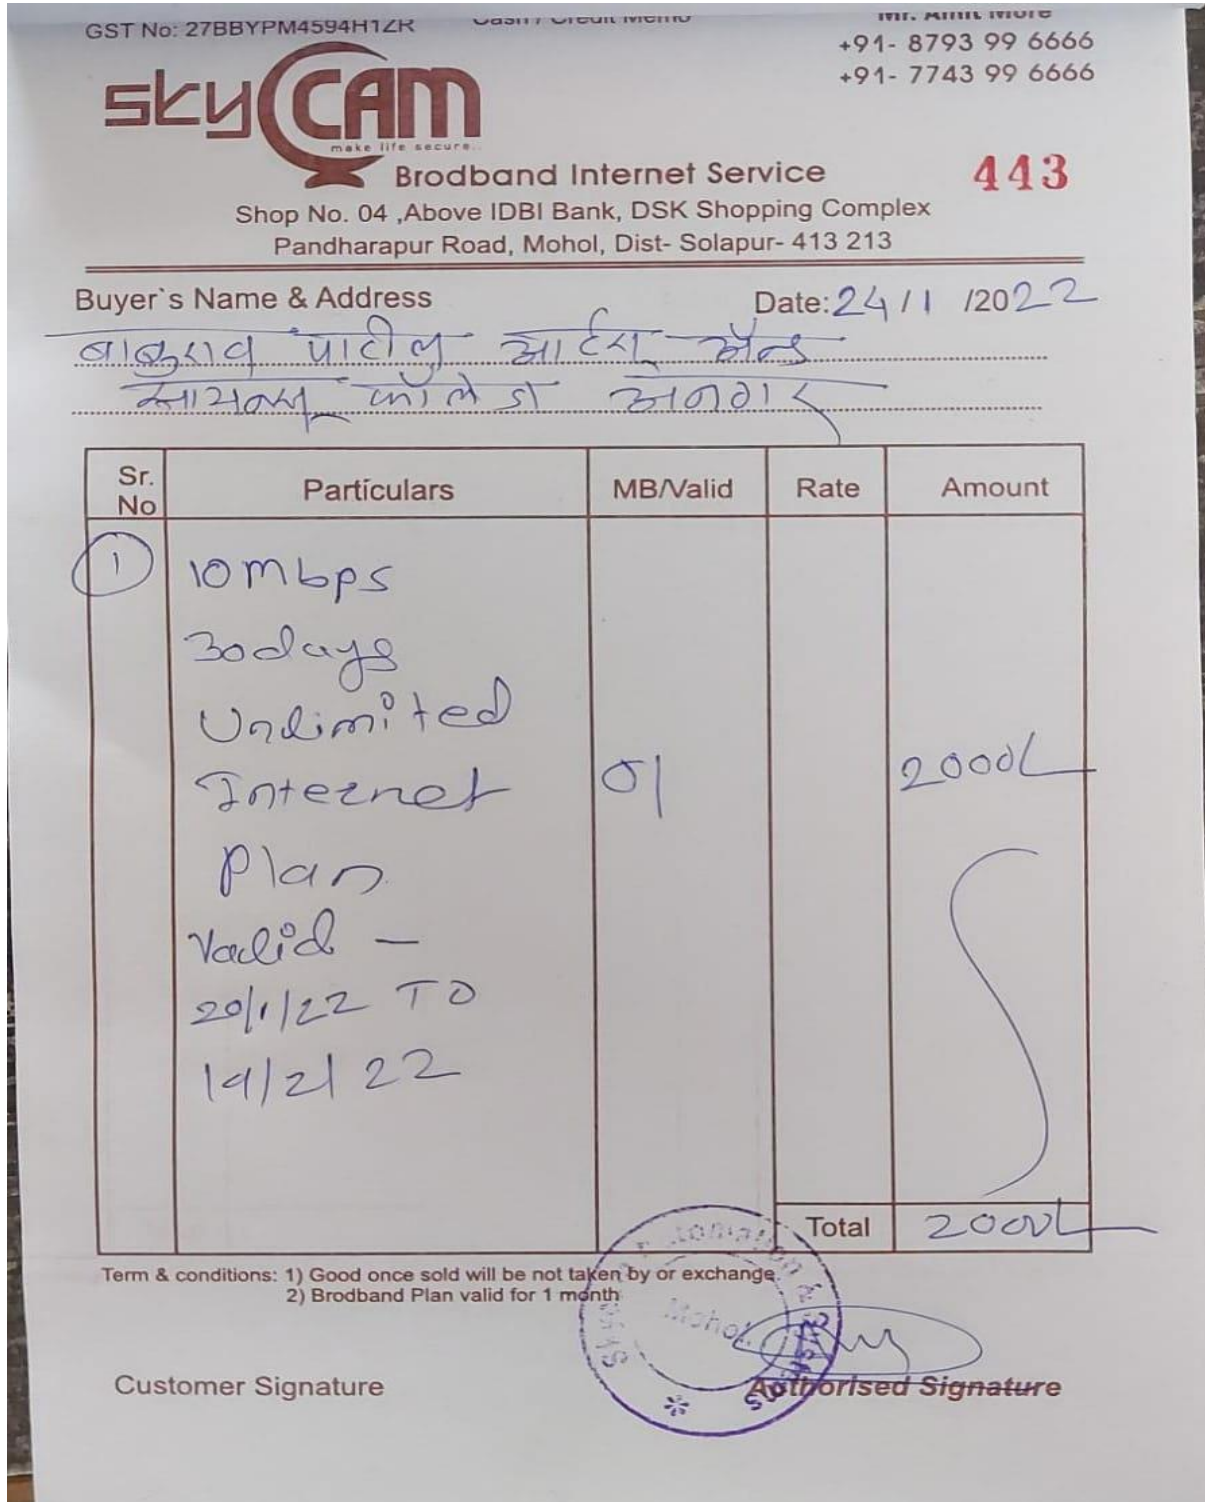 GST No: 27BBYPM4594H1ZR
Cash / Credit Memo
Mr. Amit More
+91- 8793 99 6666
+91- 7743 99 6666
skyCCAM
make life secure..
Brodband Internet Service
443
Shop No. 04 ,Above IDBI Bank, DSK Shopping Complex
Pandharapur Road, Mohol, Dist- Solapur- 413 213
Buyer`s Name & Address
Date: 24/1/2022
बाबुराव पाटील आर्टस् अॅन्ड
सायन्स् कॉलेज अनगर
Sr. No Particulars MB/Valid Rate Amount
1 10 Mbps
30 days
Unlimited
Internet 01 2000/-
Plan
Valid -
20/1/22 TO
19/2/22
Total 2000/-
Term & conditions: 1) Good once sold will be not taken by or exchange.
2) Brodband Plan valid for 1 month
Automation &
Mohol.
Customer Signature
Authorised Signature